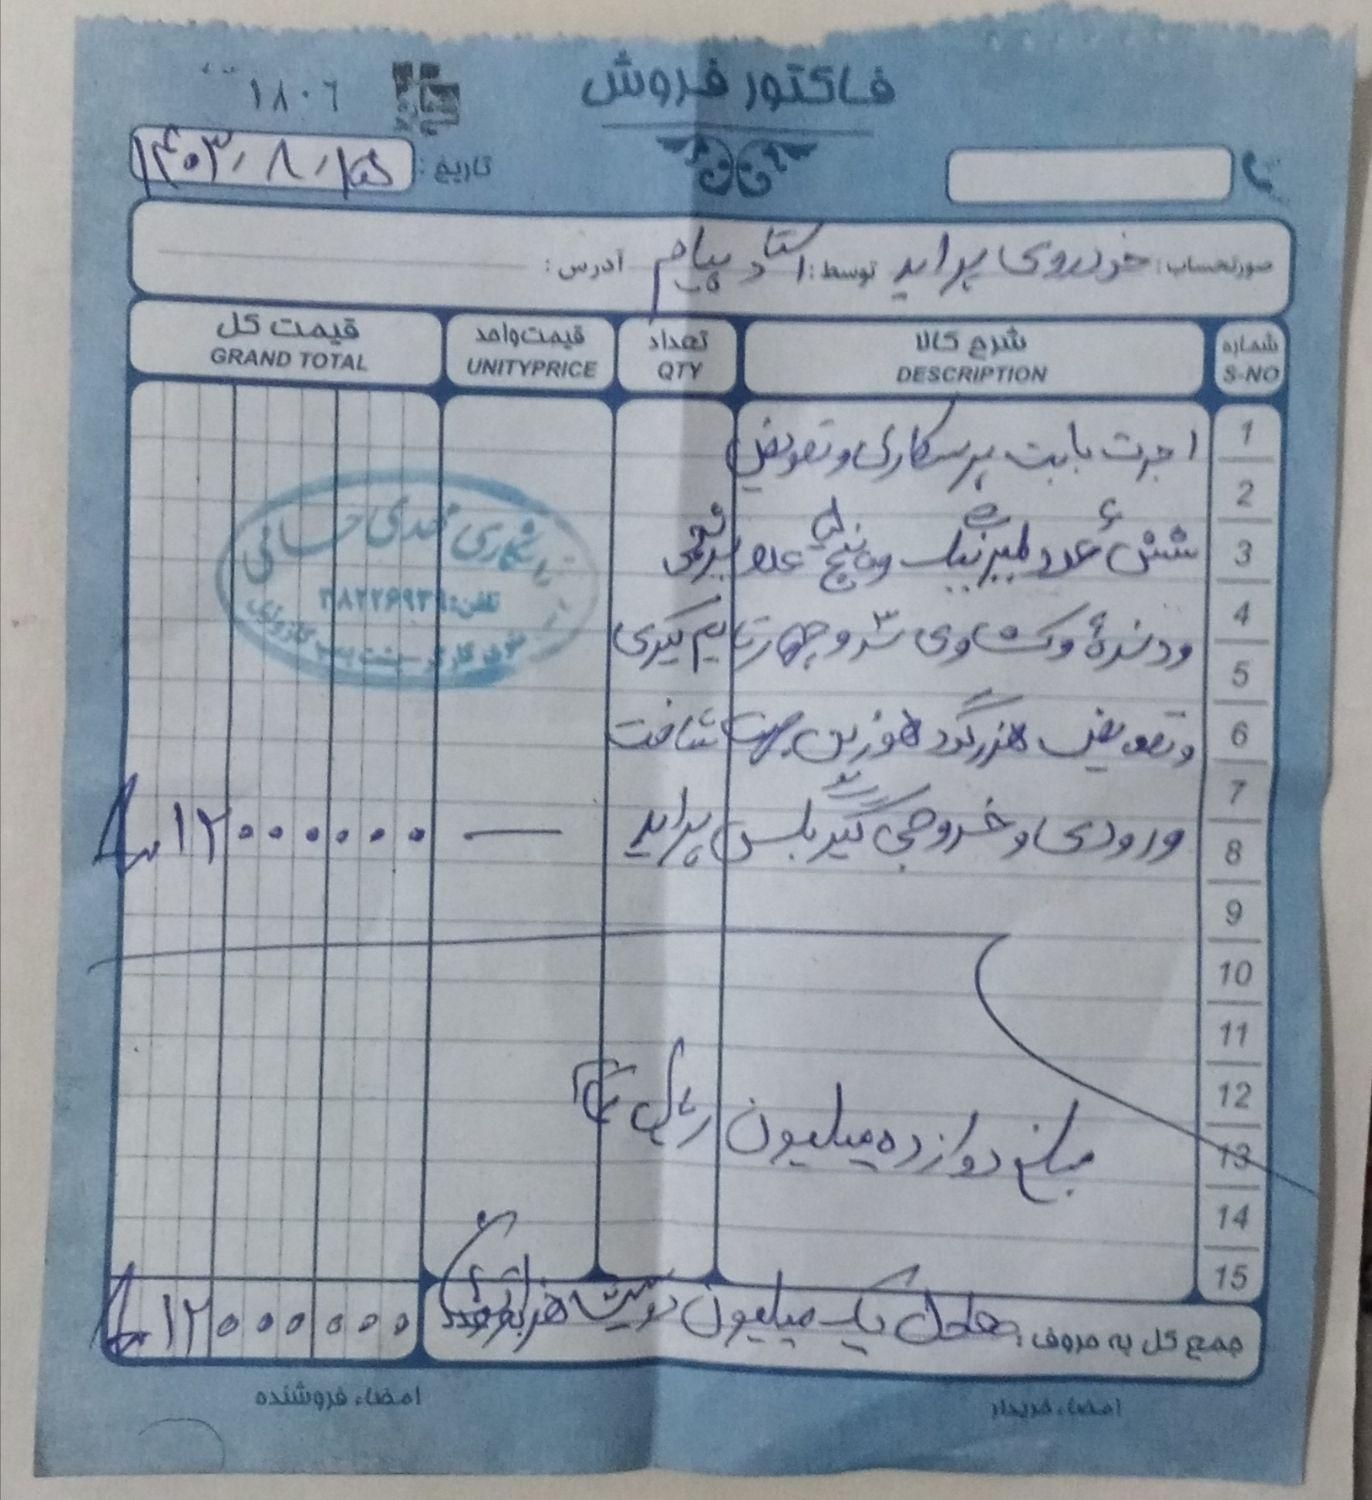 فاکتور فروش
۱۸۰۶
تاریخ: ۱۴۰۳/۸/۱۵
صورتحساب: خودروی پراید توسط: استاد پیام آدرس:
شماره S-NO شرح کالا DESCRIPTION تعداد QTY قیمت واحد UNITYPRICE قیمت کل GRAND TOTAL
1
اجرت بابت پرسکاری و تعویض
2
3
شش عدد بلبرینگ و پنج عدد برنجی
4
و دنده و کشاوی سه و چهار تایم گیری
5
6
و تعویض هزرگرد هوزینگ جهت شافت
7
8
ورودی و خروجی گیربکس پراید — ۱۲۰۰۰۰۰۰
9
10
11
12
13
مبلغ دوازده میلیون ریال
14
15
جمع کل به حروف: معادل یک میلیون دویست هزار تومان ۱۲۰۰۰۰۰۰
امضاء خریدار
امضاء فروشنده
تراشکاری مهدی حسانی
تلفن: ۳۸۲۲۶۹۳۱